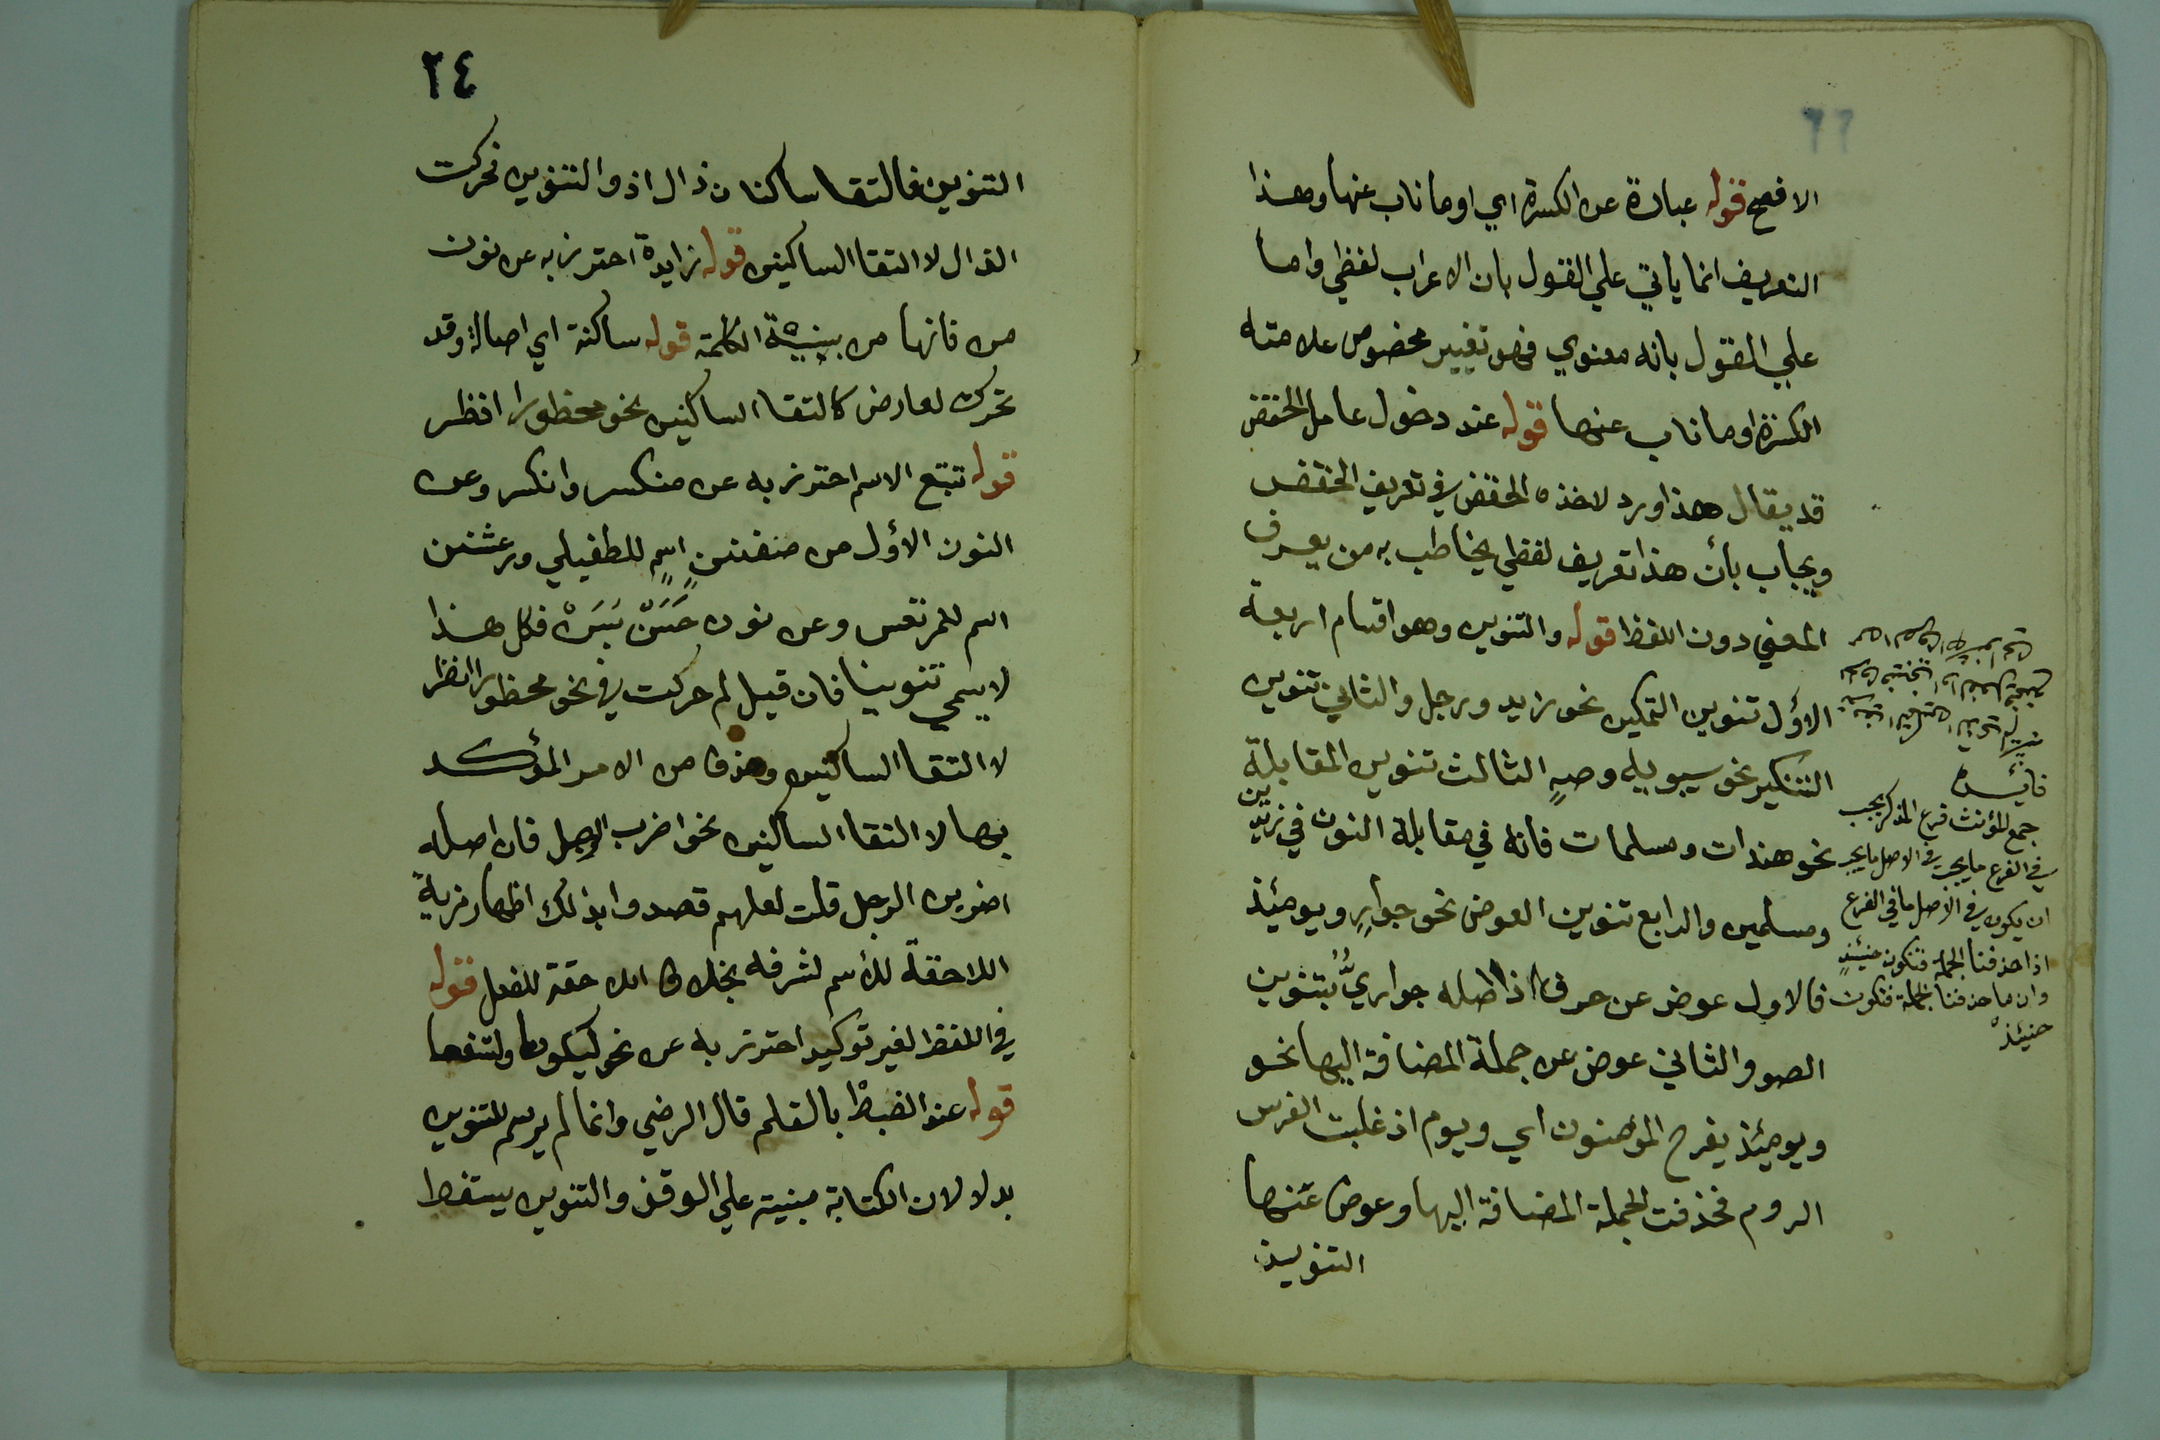 الافصح قوله عبارة عن الكسرة اي او ما ناب عنها وهذا
التعريف انما ياتي علي القول بان الاعراب لفظي واما
علي القول بانه معنوي فهو تغيير مخصوص علامته
الكسرة او ما ناب عنها قوله عند دخول عامل الخفض
قد يقال هذا ورد لاخذه الخفض في تعريف الخفض
ويجاب بأن هذا تعريف لفظي يخاطب به من يعرف
المعني دون اللفظ قوله والتنوين وهو اقسام اربعة
الاول تنوين التمكين نحو زيد ورجل والثاني تنوين
التنكير نحو سيبويه وصهٍ الثالث تنوين المقابلة
نحو هندات ومسلمات فانه في مقابلة النون في زيدين
ومسلمين والرابع تنوين العوض نحو جوارٍ ويومئذ
فالاول عوض عن حرف اذ اصله جواريٌ بتنوين
الصر والثاني عوض عن جملة المضافة اليها نحو
ويومئذ يفرح المؤمنون اي ويوم اذ غلبت الفرس
الروم فحذفت الجملة المضافة اليها وعوض عنها
التنوين
فائدة
جمع المؤنث فرع المذكر يجب
في الفرع ما يجب في الاصل ما يجر
ان يكون في الاصل ما في الفرع
اذا حذفنا الجملة فتكون حينئذٍ
وان ما حذفنا الجملة فتكون
حينئذْ
٢٤
التنوين فالتقا ساكنان ذال اذ والتنوين فحركت
الذال لالتقا الساكنين قوله زايدة احترز به عن نون
من فانها من بينية الكلمة قوله ساكنة اي اصالة وقد
تحرك لعارض كالتقا الساكنين نحو محظورا انظر
قوله تتبع الاسم احترز به عن منكسر وانكسر وعن
النون الاؤل من ضفنن اسم للطفيلي ورعشن
اسم للمرتعش وعن نون حَسَنْ بَسَنْ فكل هذا
لا يسمي تنوينا فان قيل لم حركت في نحو محظورا انظر
لالتقا الساكنين وحذفا من الامر المؤكد
بها لالتقا الساكنين نحو اضرب الرجل فان اصله
اضربن الرجل قلت لعلهم قصدوا بذلك اظهار مزية
اللاحقة للأسم لشرفه بخلاف اللاحقة للفعل قوله
في اللفظ لغير توكيد احترز به عن نحو ليكونا ولنسفعا
قوله عند الضبط بالقلم قال الرضي وانما لم يرسم للتنوين
بدلا لان الكتابة مبنية علي الوقف والتنوين يسقط